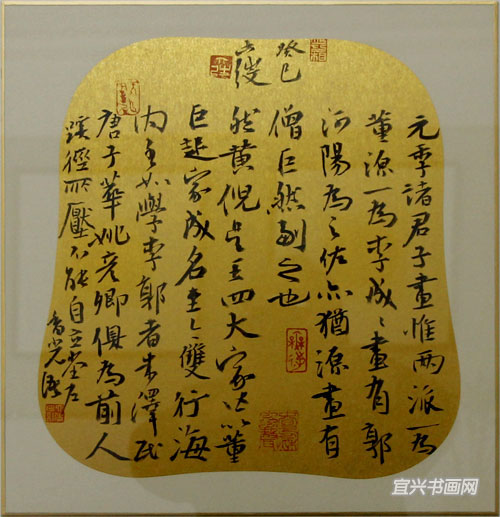 元季諸君子畫惟兩派一為
董源一為李成〻畫有郭
河陽為之佐亦猶源畫有
僧巨然副之也
癸巳
然黃倪吳王四大家以董
巨起家成名至今雙行海
內至如學李郭者朱澤民
唐子華姚彥卿俱為前人
蹊徑所壓不能自立堂户
香光語
宜兴书画网